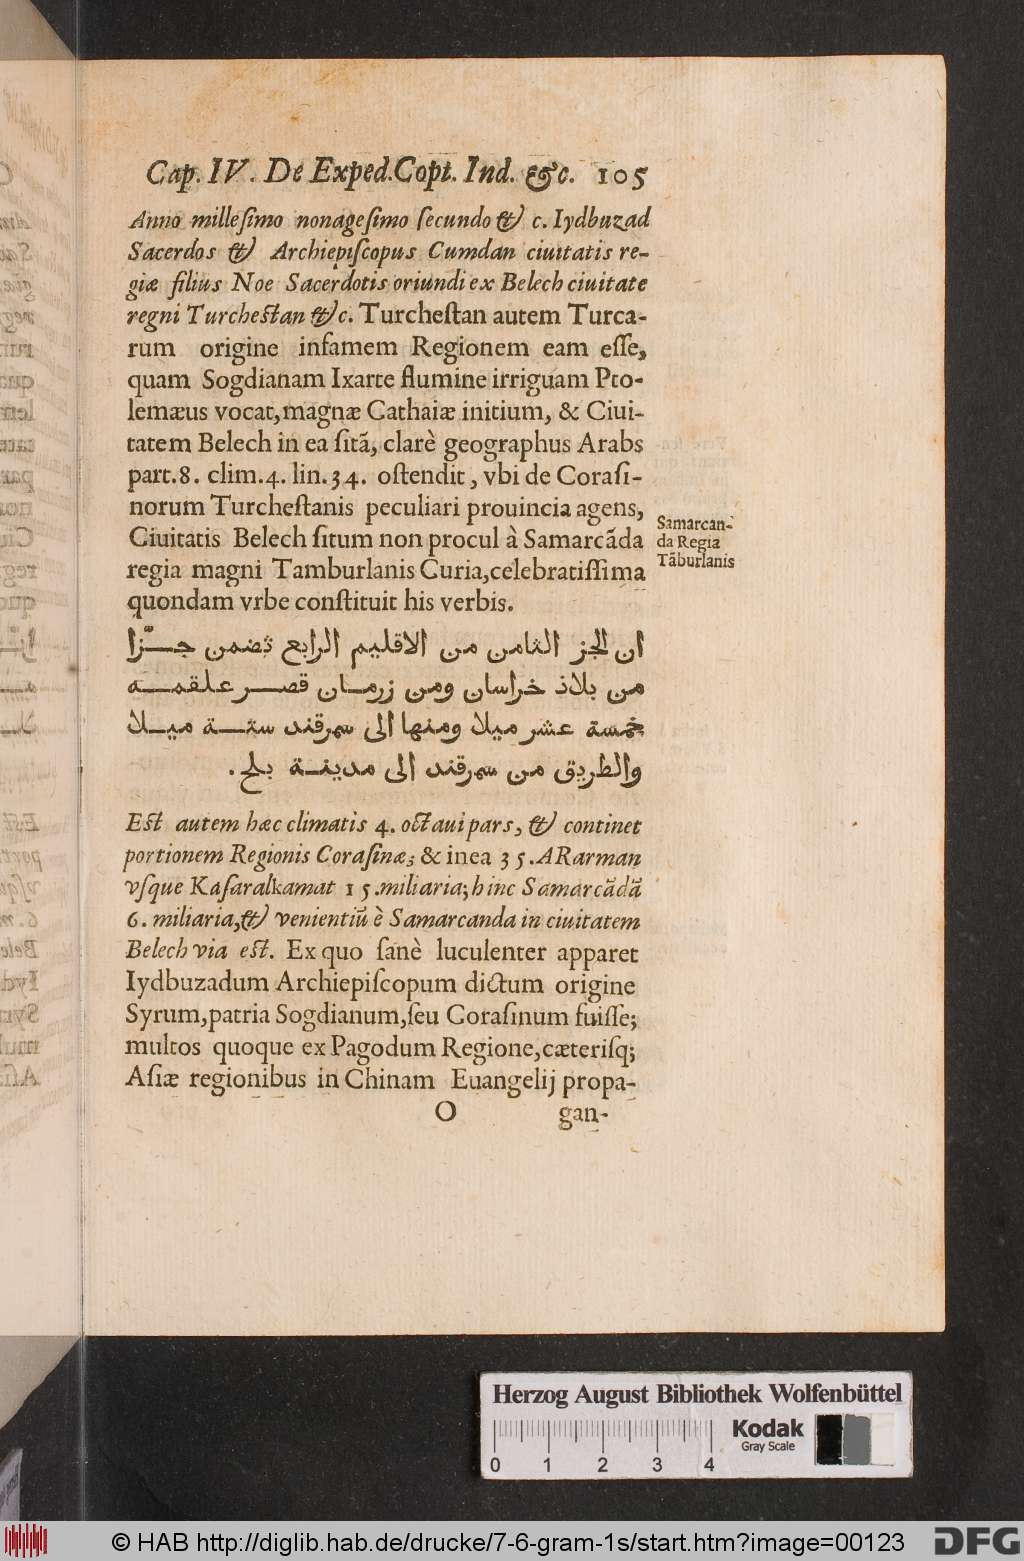 Cap. IV. De Exped. Copt. Ind. &c. 105
Anno milleſimo nonageſimo ſecundo & c. Iydbuzad
Sacerdos & Archiepiſcopus Cumdan ciuitatis re-
giæ filius Noe Sacerdotis oriundi ex Belech ciuitate
regni Turcheſtan &c. Turcheſtan autem Turca-
rum origine infamem Regionem eam eſſe,
quam Sogdianam Ixarte flumine irriguam Pto-
lemæus vocat, magnæ Cathaiæ initium, & Ciui-
tatem Belech in ea ſitã, clarè geographus Arabs
part. 8. clim. 4. lin. 34. oſtendit, vbi de Coraſi-
norum Turcheſtanis peculiari prouincia agens,
Ciuitatis Belech ſitum non procul à Samarcãda
regia magni Tamburlanis Curia, celebratiſſima
quondam vrbe conſtituit his verbis.
Samarcan-
da Regia
Tãburlanis
ان الجز الثامن من الاقليم الرابع تضمن جــزّا
من بلاذ خراسان ومن زرمــان قصــر علقمــه
خمسة عشر ميلا ومنها الى سمرقند ستــة ميــلا
والطريق من سمرقند الى مدينــة بلخ .
Eſt autem hæc climatis 4. octaui pars, & continet
portionem Regionis Coraſinæ; & in ea 35. ARarman
vſque Kaſaralkamat 15. miliaria; hinc Samarcãdã
6. miliaria, & venientiũ è Samarcanda in ciuitatem
Belech via eſt. Ex quo ſanè luculenter apparet
Iydbuzadum Archiepiſcopum dictum origine
Syrum, patria Sogdianum, ſeu Coraſinum fuiſſe;
multos quoque ex Pagodum Regione, cæteriſq;
Aſiæ regionibus in Chinam Euangelij propa-
O gan-
Herzog August Bibliothek Wolfenbüttel
0 1 2 3 4
Kodak
Gray Scale
© HAB http://diglib.hab.de/drucke/7-6-gram-1s/start.htm?image=00123
DFG